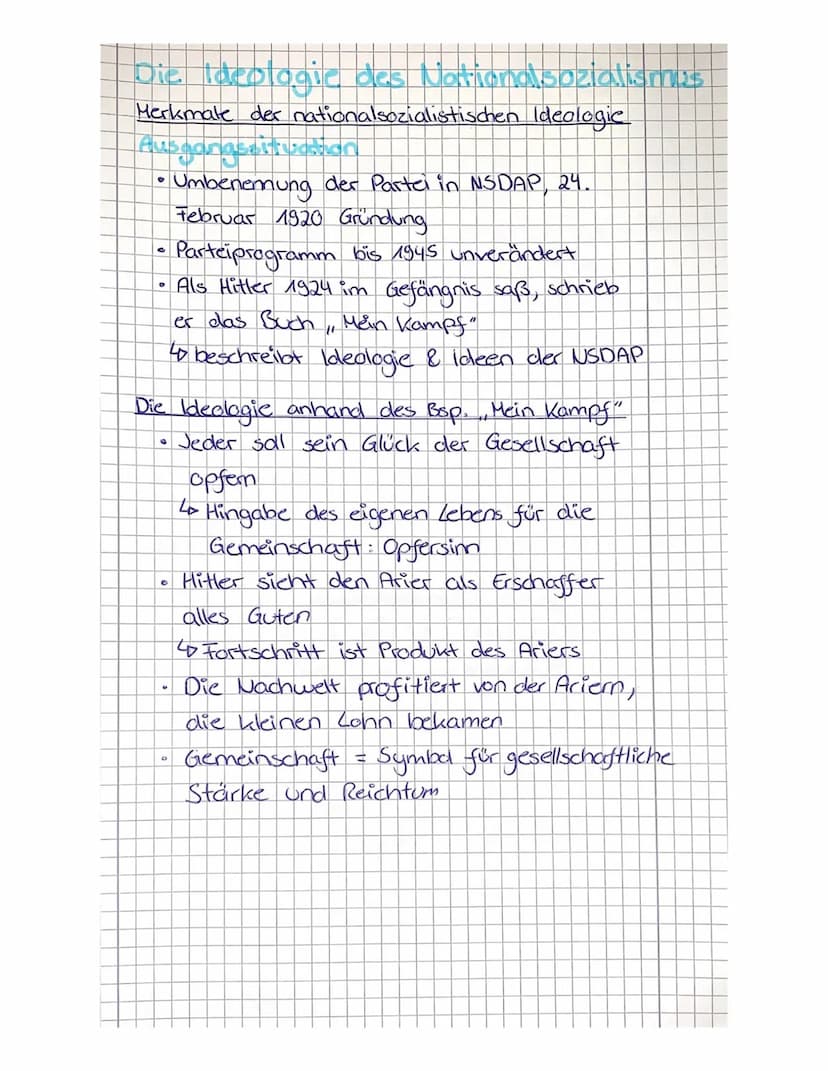 Die Ideologie des Nationalsozialismus
Merkmale der nationalsozialistischen Ideologie
Ausgangssituation
• Umbenennung der Partei in NSDAP, 24.
Februar 1920 Gründung
• Parteiprogramm bis 1945 unverändert
• Als Hitler 1924 im Gefängnis saß, schrieb
er das Buch „Mein Kampf"
↳ beschreibt Ideologie & Ideen der NSDAP
Die Ideologie anhand des Bsp. „Mein Kampf"
• Jeder soll sein Glück der Gesellschaft
opfern
↳ Hingabe des eigenen Lebens für die
Gemeinschaft: Opfersinn
• Hitler sieht den Arier als Erschaffer
alles Guten
↳ Fortschritt ist Produkt des Ariers
• Die Nachwelt profitiert von der Ariern,
die kleinen Lohn bekamen
• Gemeinschaft = Symbol für gesellschaftliche
Stärke und Reichtum